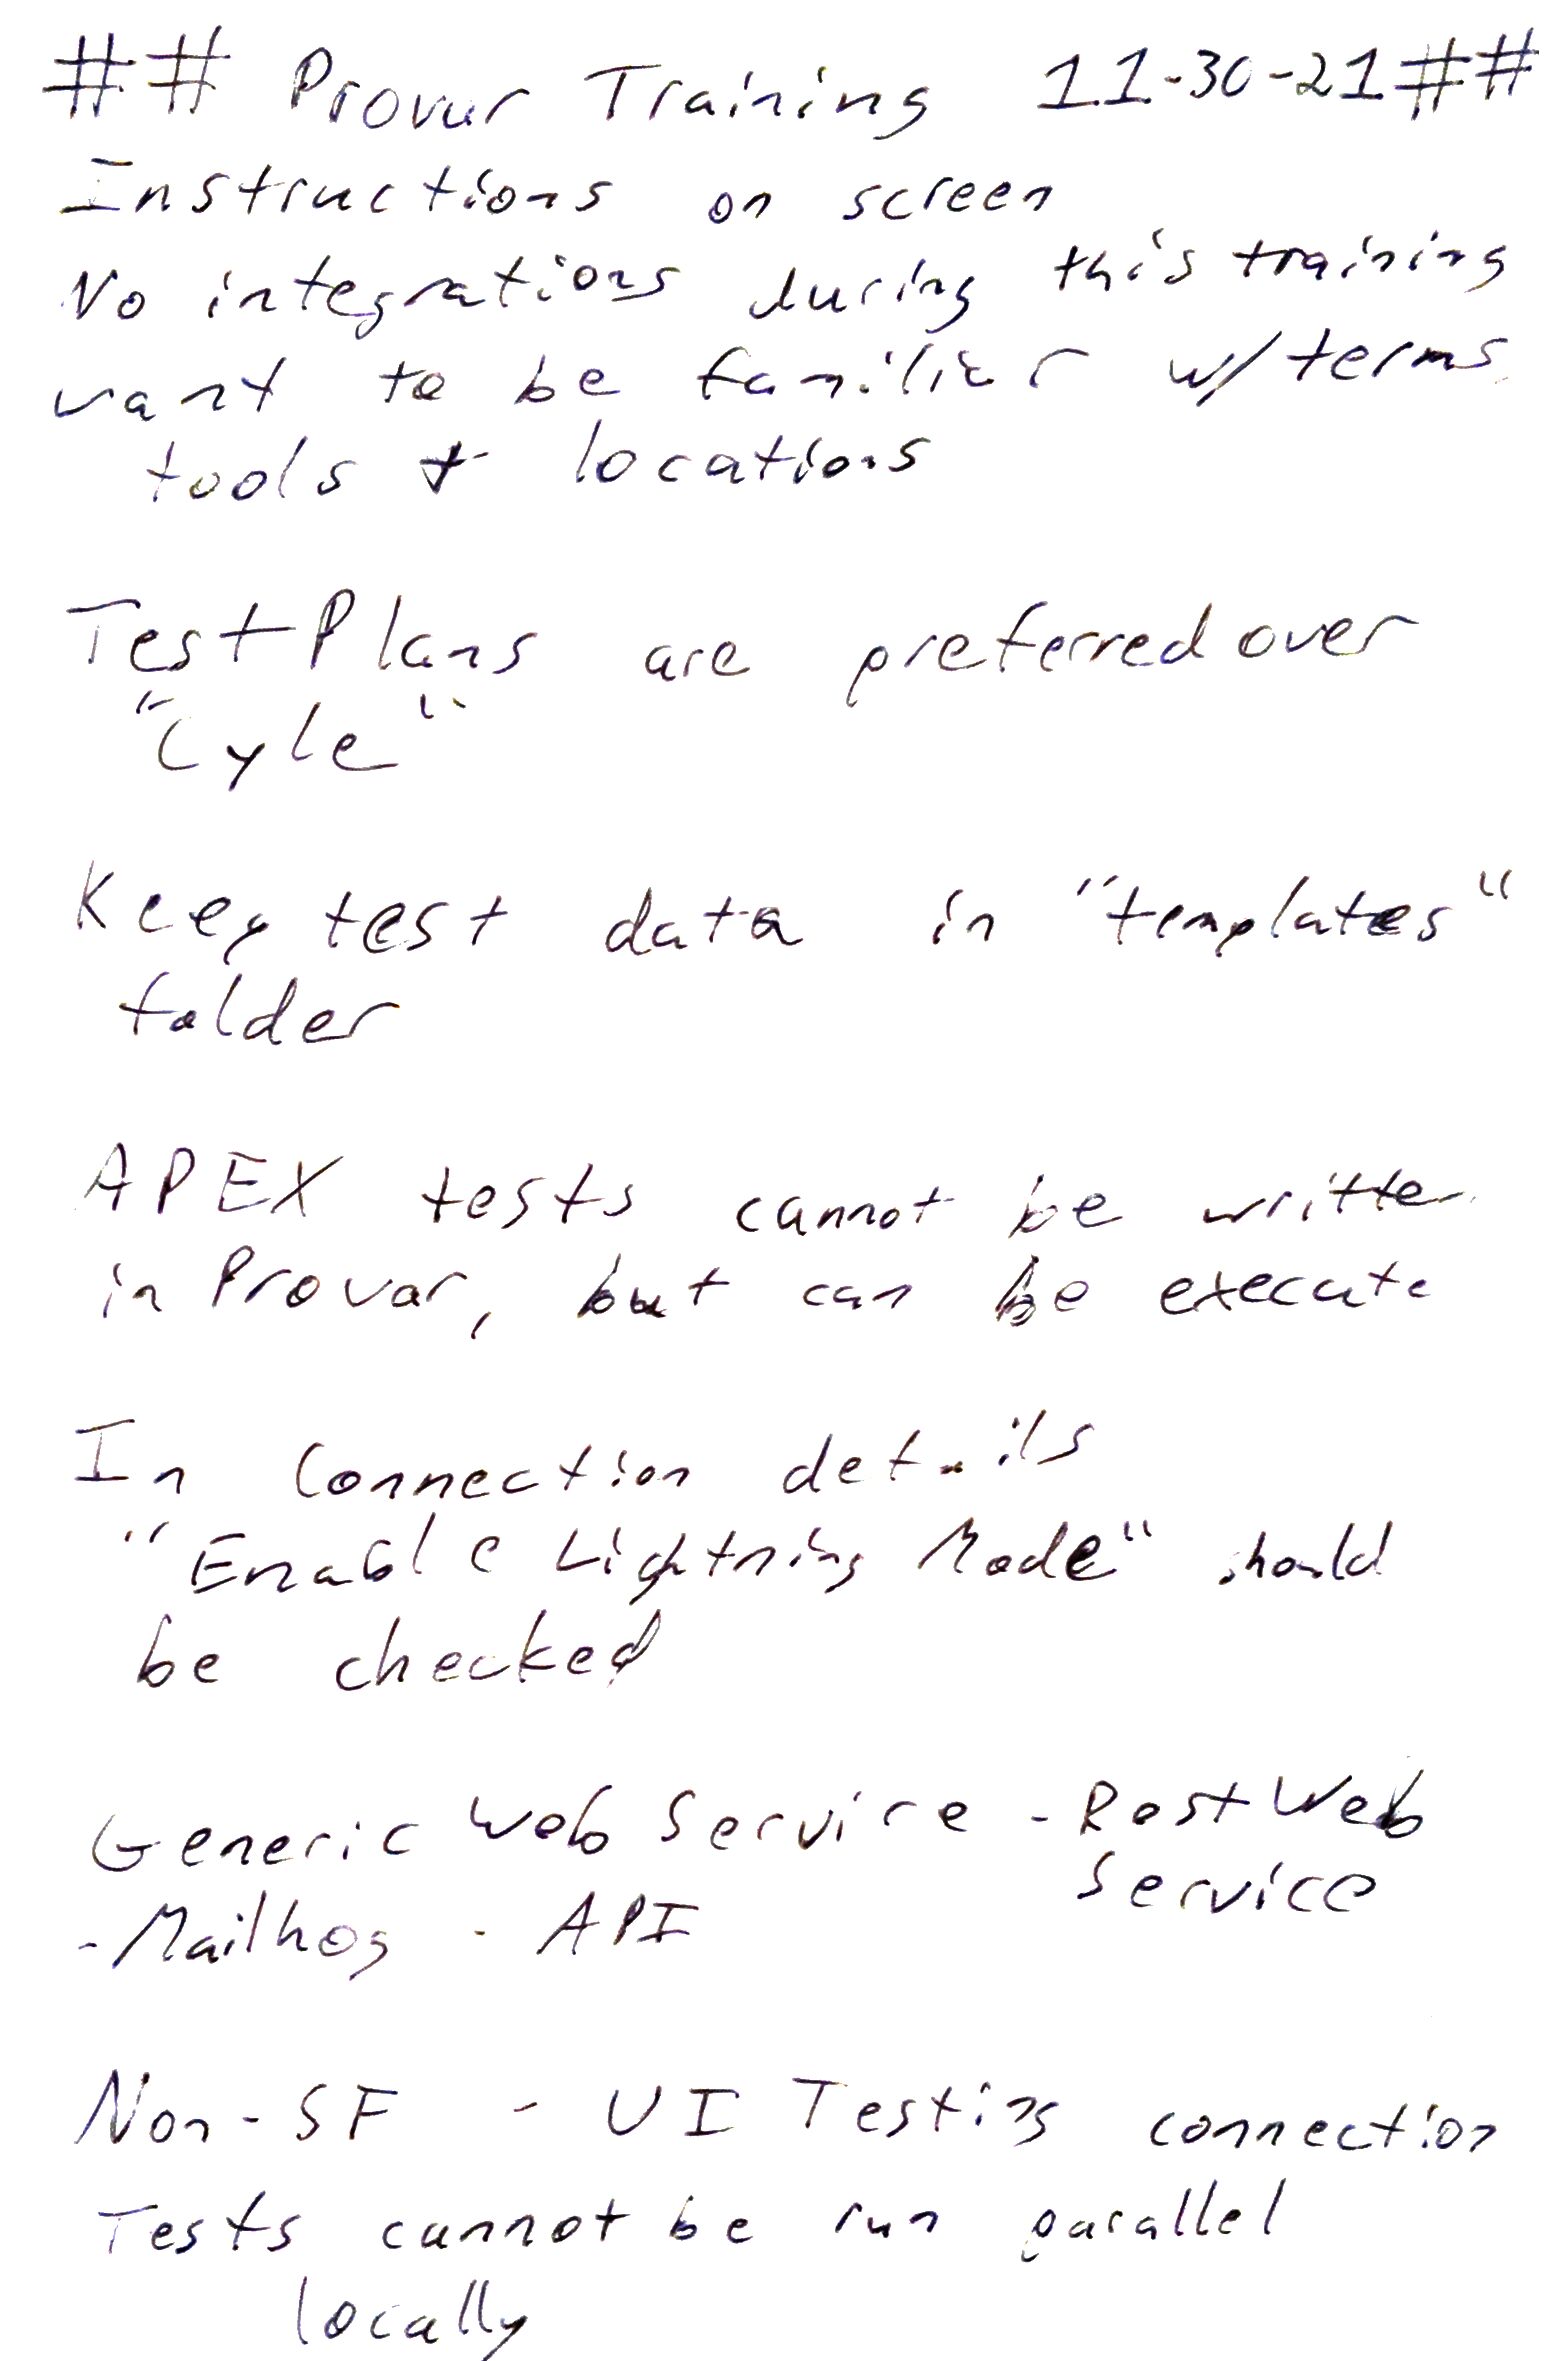 ## Provar Training 11-30-21##
Instructions on screen
No integrations during this training
want to be familiar w/ terms
tools + locations
Test Plans are preferred over
"Cyle"
Keep test data in "templates"
folder
APEX tests cannot be written
in Provar, but can be execute
In Connection details
"Enable Lightning Mode" should
be checked
Generic Web Service - Rest Web
Service
- Mailhog - API
Non-SF - UI Testing connection
Tests cannot be run parallel
locally